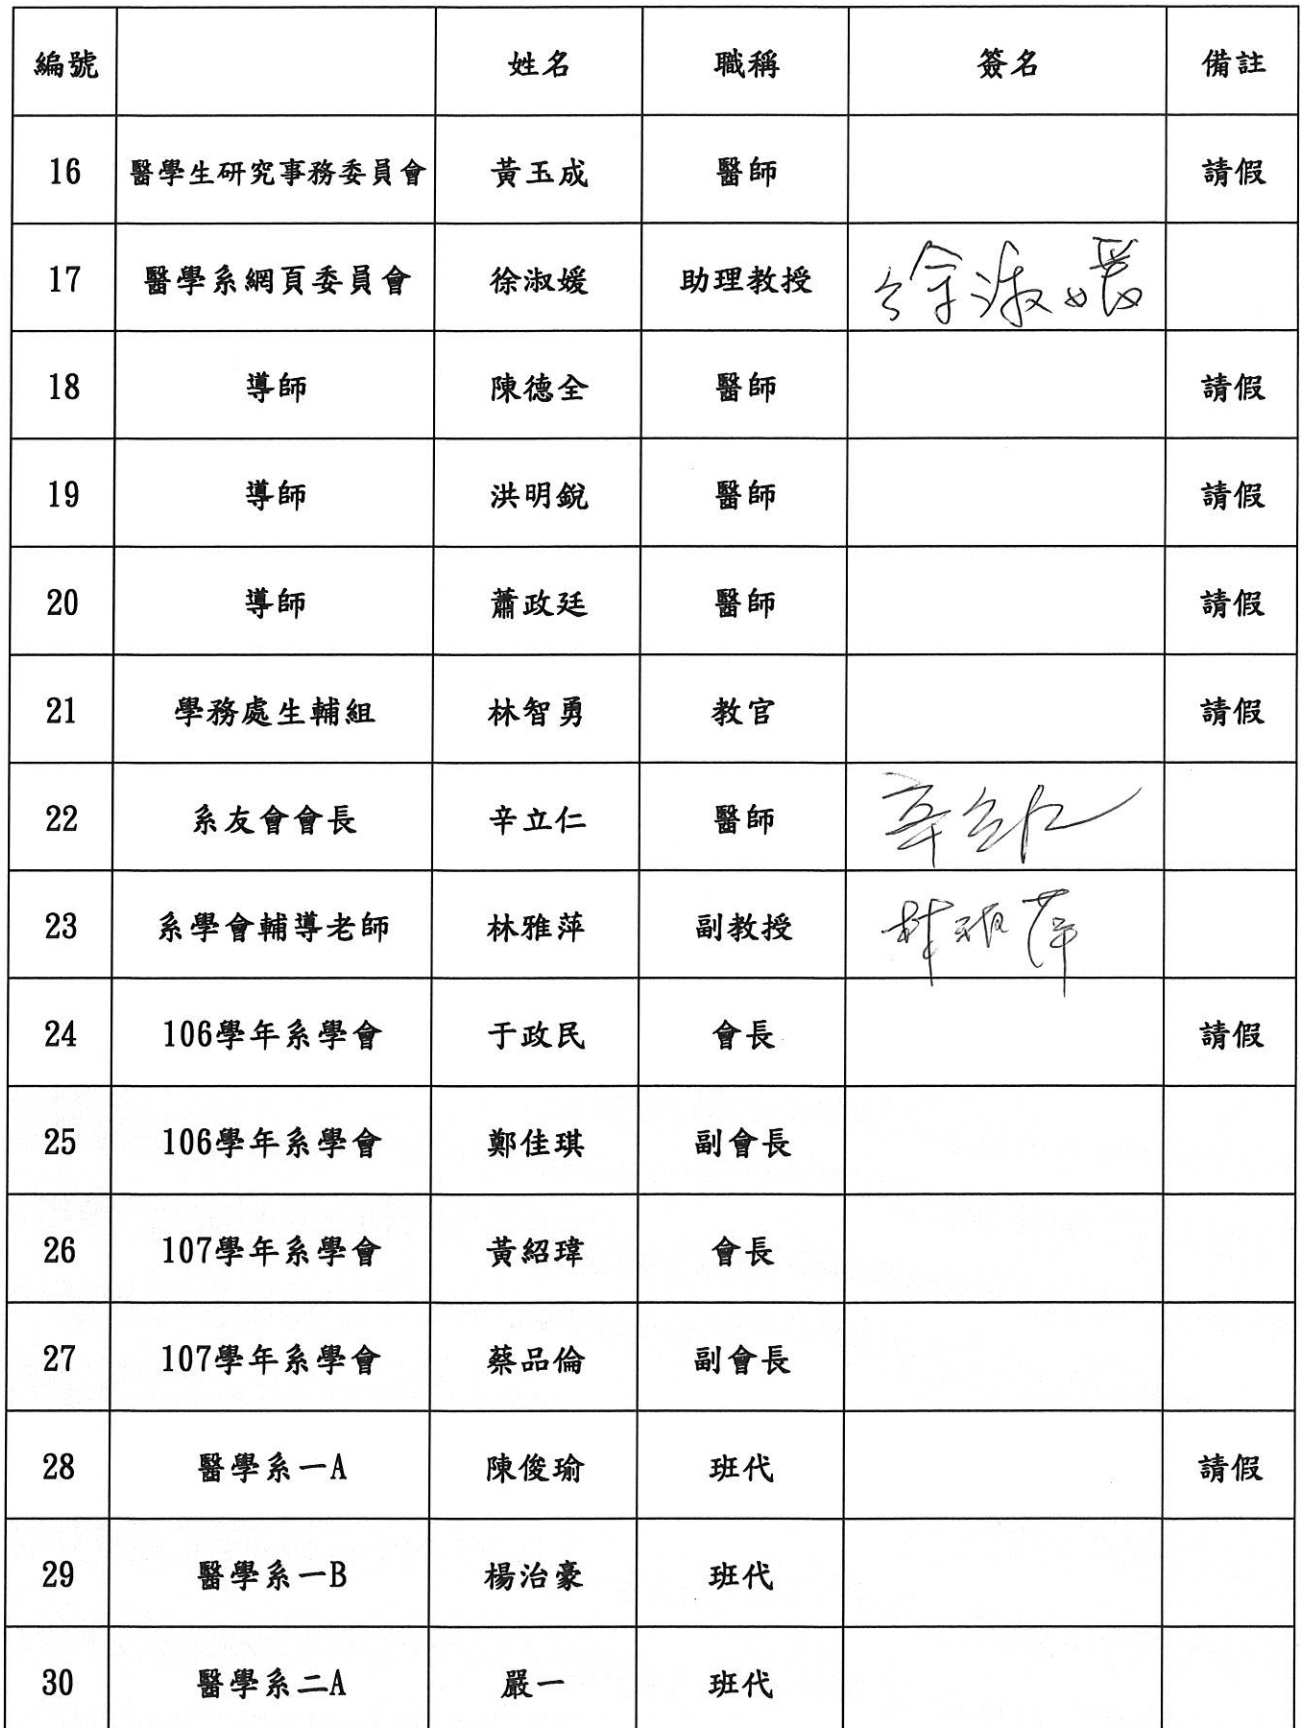 編號 姓名 職稱 簽名 備註
16 醫學生研究事務委員會 黃玉成 醫師 請假
17 醫學系網頁委員會 徐淑媛 助理教授 徐淑媛
18 導師 陳德全 醫師 請假
19 導師 洪明銳 醫師 請假
20 導師 蕭政廷 醫師 請假
21 學務處生輔組 林智勇 教官 請假
22 系友會會長 辛立仁 醫師 辛立仁
23 系學會輔導老師 林雅萍 副教授 林雅萍
24 106學年系學會 于政民 會長 請假
25 106學年系學會 鄭佳琪 副會長
26 107學年系學會 黃紹瑋 會長
27 107學年系學會 蔡品倫 副會長
28 醫學系一A 陳俊瑜 班代 請假
29 醫學系一B 楊治豪 班代
30 醫學系二A 嚴一 班代